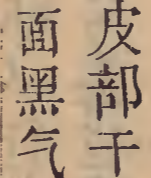 皮部干
面黑气